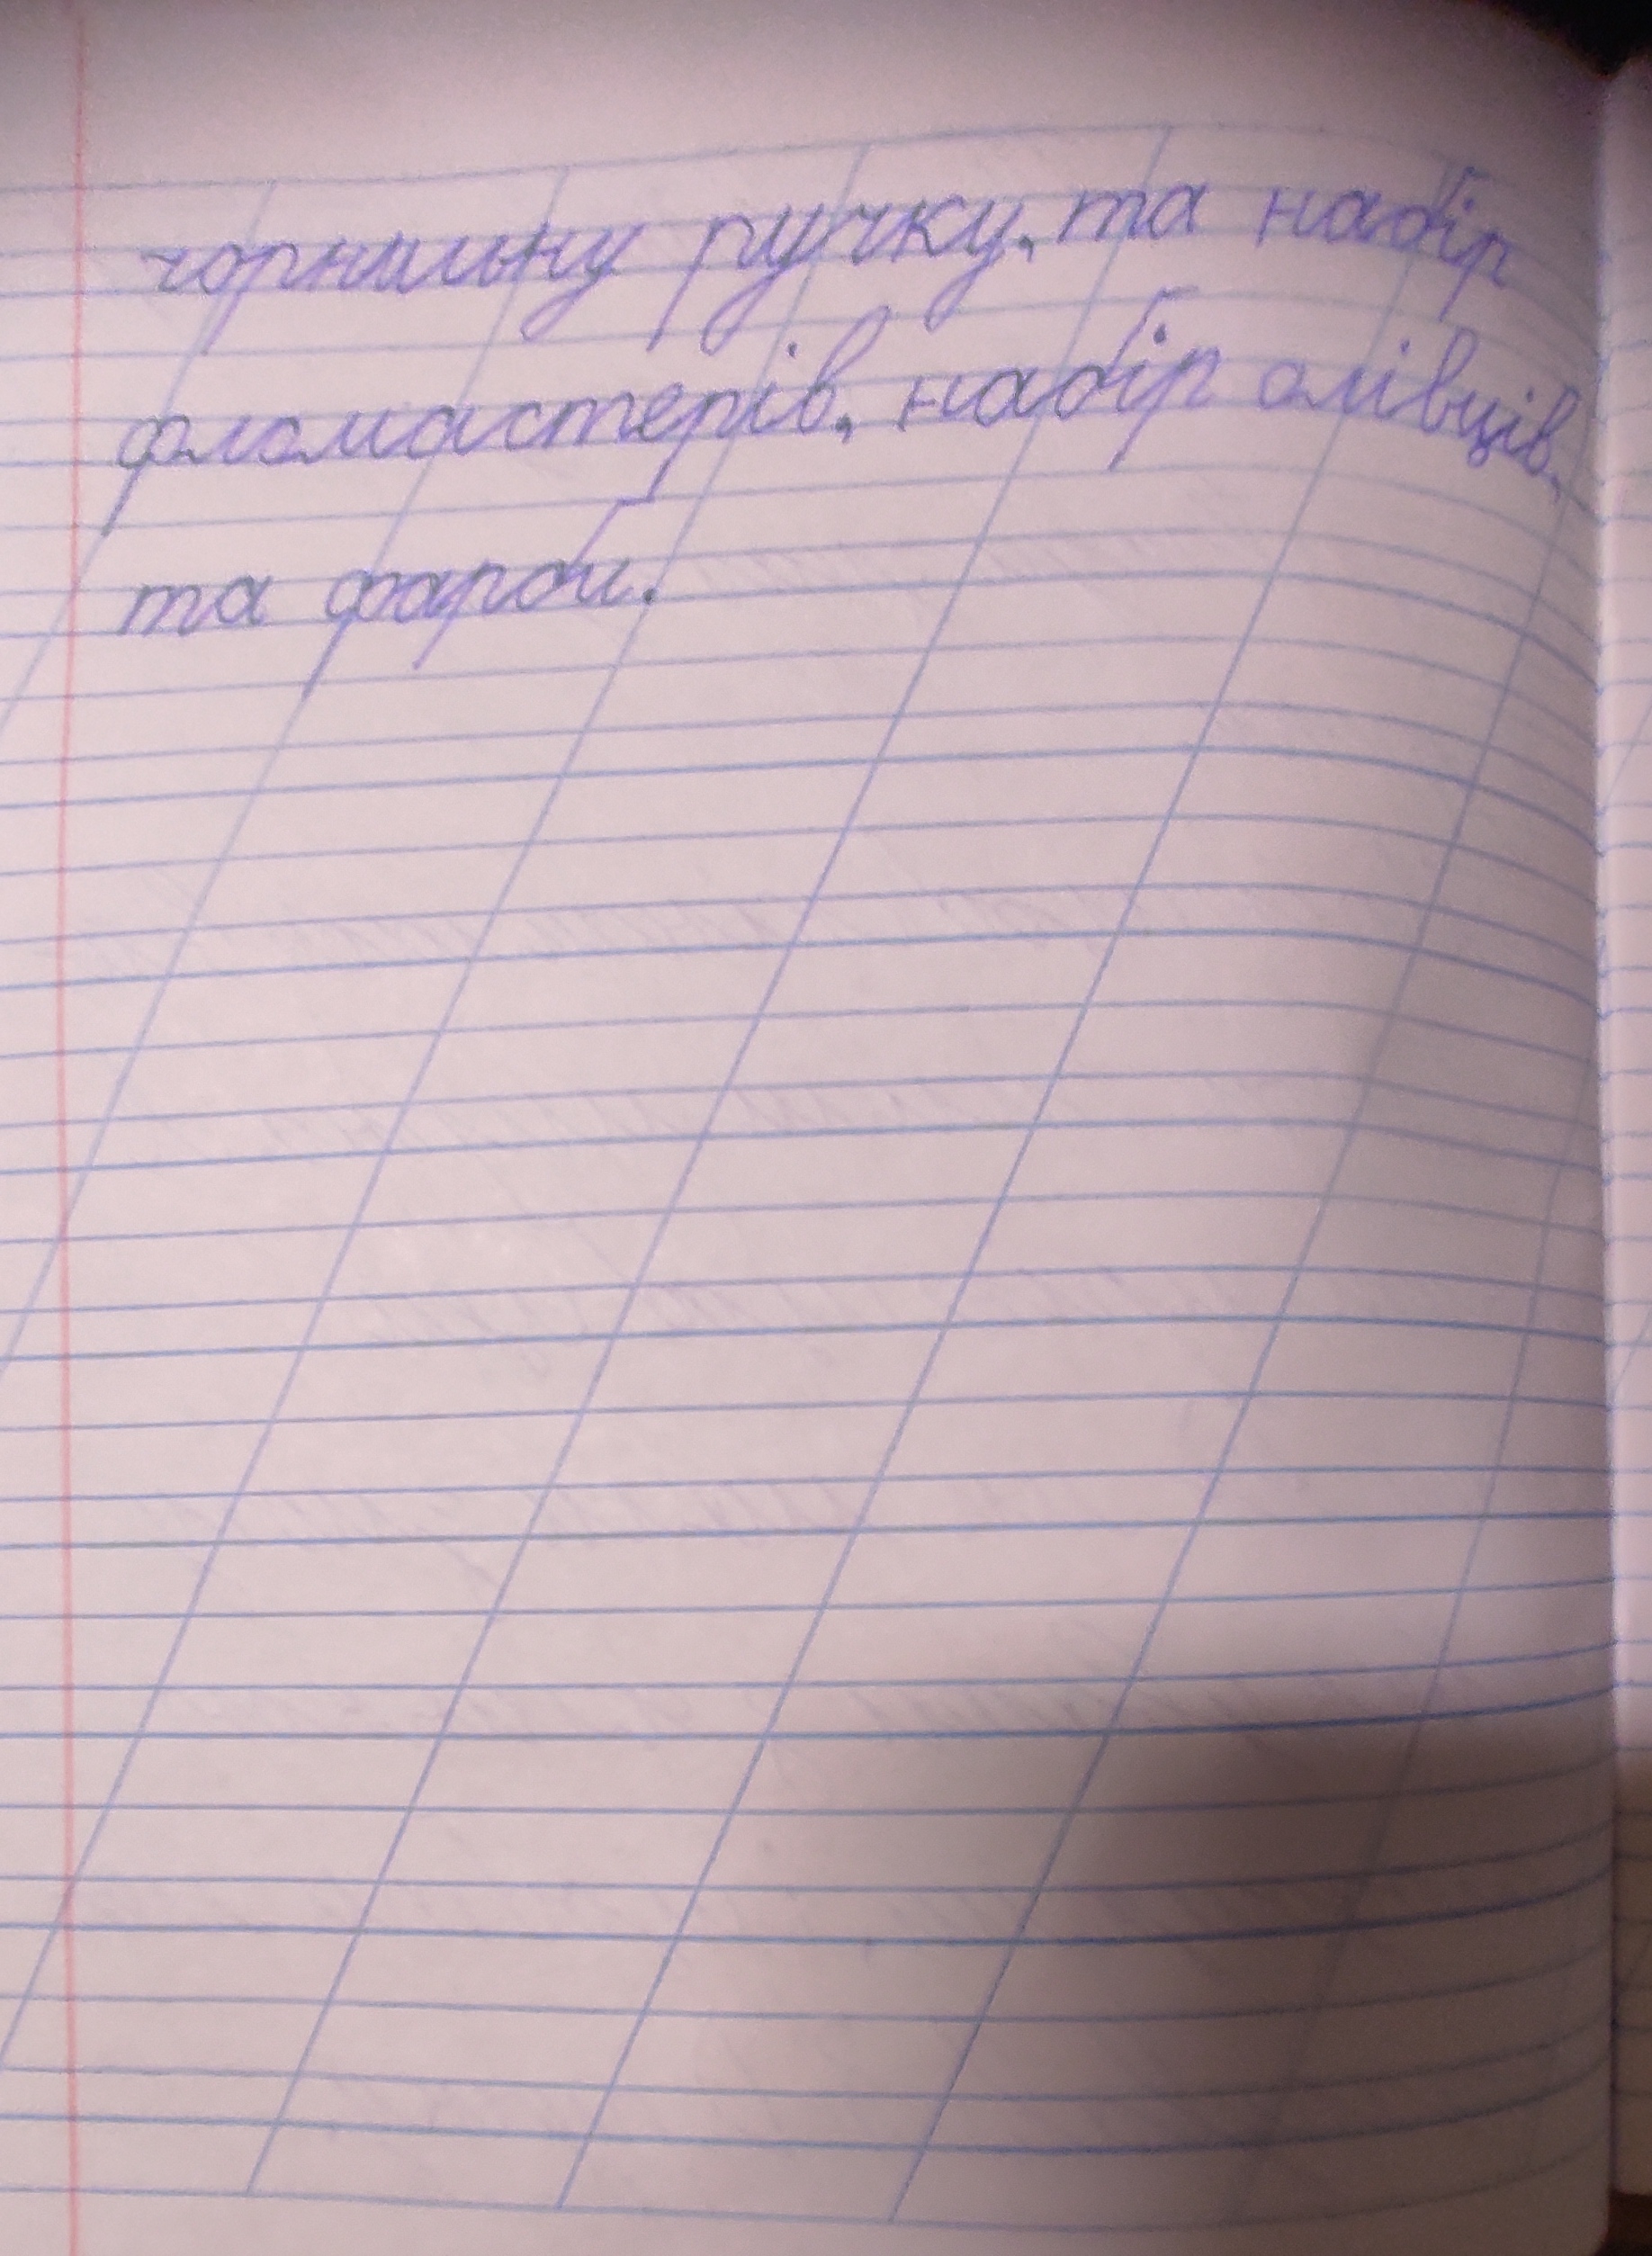 чорнильну ручку, та набір
фломастерів, набір олівців,
та фарби.